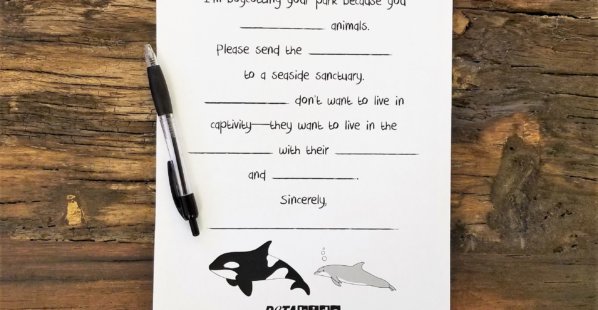 I'm boycotting your park because you
______________ animals.
Please send the ______________
to a seaside sanctuary.
______________ don't want to live in
captivity—they want to live in the
______________ with their ______________
and ______________.
Sincerely,
______________